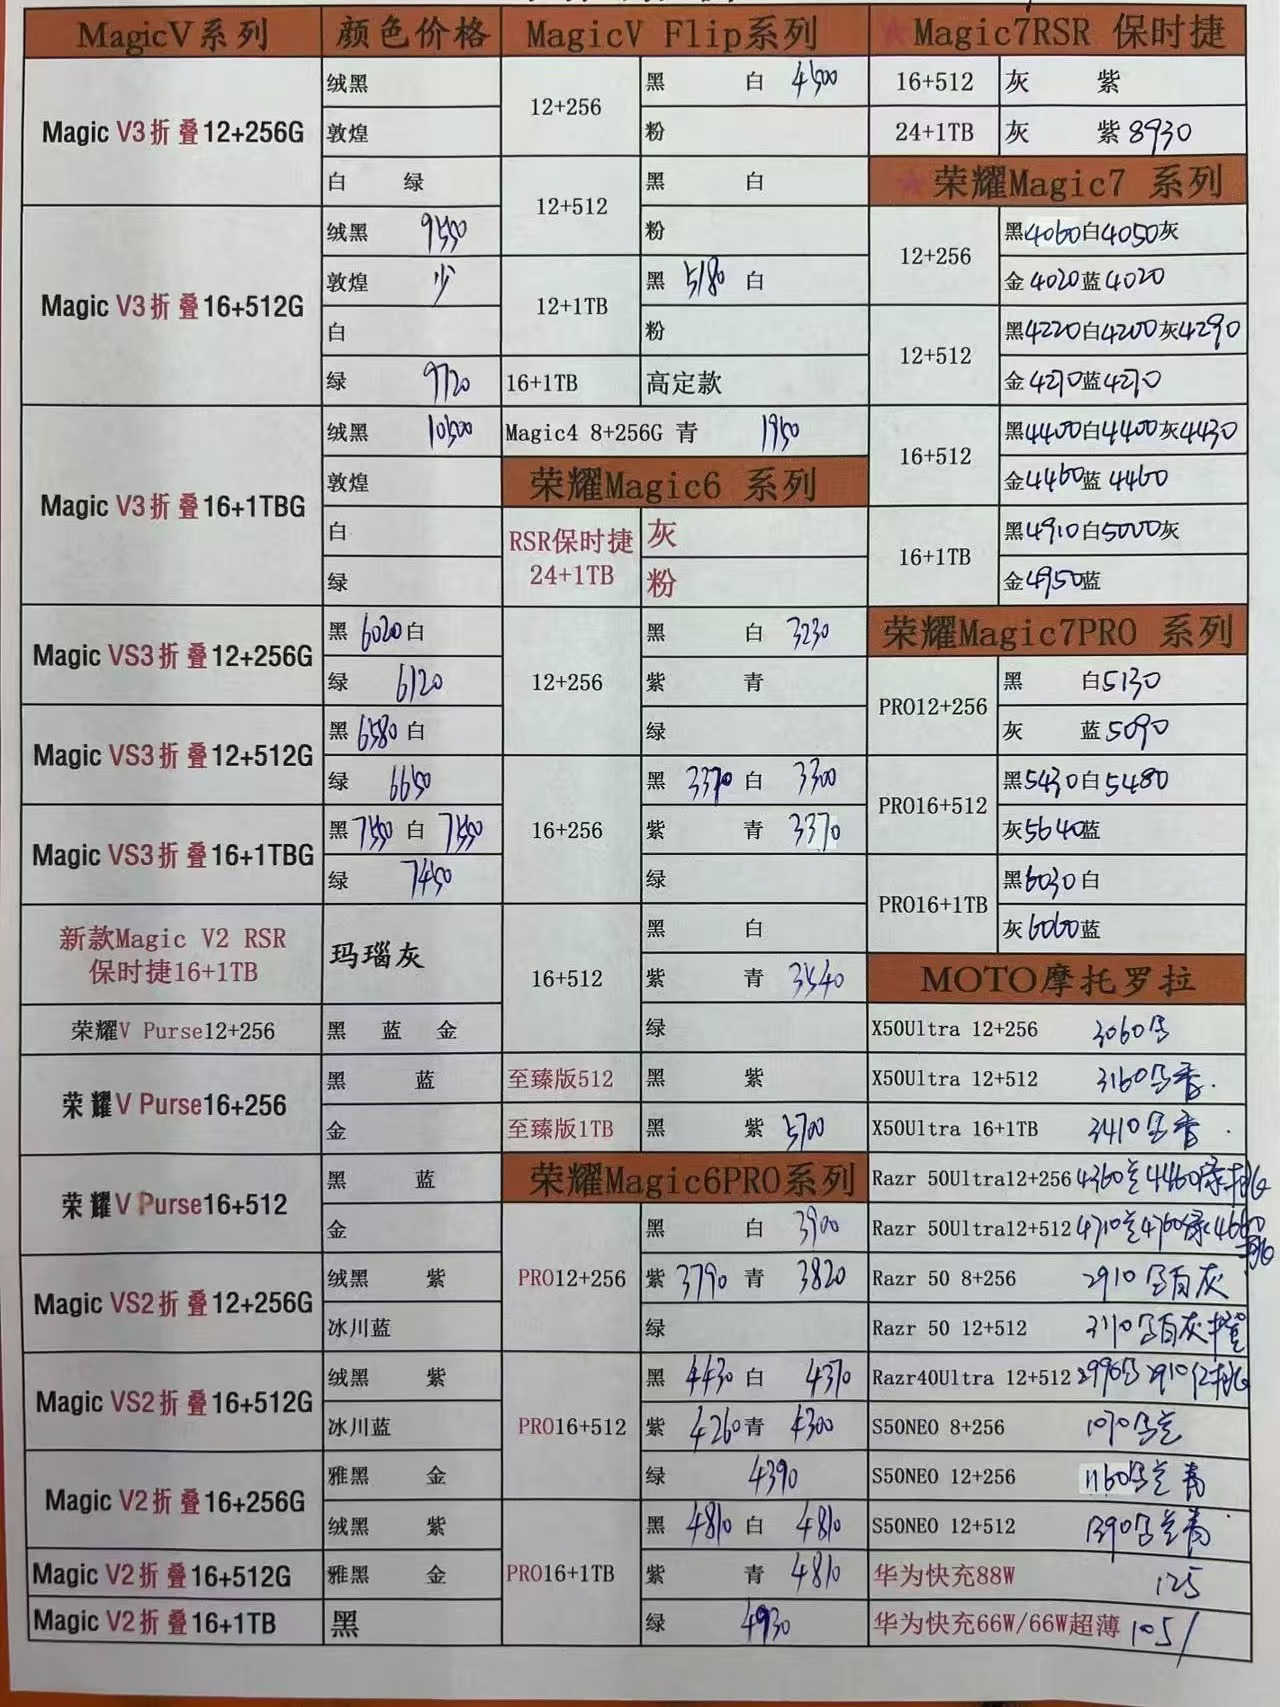 MagicV系列 颜色价格
Magic V3折叠12+256G 绒黑
敦煌
白 绿
Magic V3折叠16+512G 绒黑 9550
敦煌 少
白
绿 9720
Magic V3折叠16+1TBG 绒黑 10500
敦煌
白
绿
Magic VS3折叠12+256G 黑 6020 白
绿 6120
Magic VS3折叠12+512G 黑 6580 白
绿 6650
Magic VS3折叠16+1TBG 黑 7550 白 7550
绿 7450
新款Magic V2 RSR
保时捷16+1TB 玛瑙灰
荣耀V Purse12+256 黑 蓝 金
荣耀V Purse16+256 黑 蓝
金
荣耀V Purse16+512 黑 蓝
金
Magic VS2折叠12+256G 绒黑 紫
冰川蓝
Magic VS2折叠16+512G 绒黑 紫
冰川蓝
Magic V2折叠16+256G 雅黑 金
绒黑 紫
Magic V2折叠16+512G 雅黑 金
Magic V2折叠16+1TB 黑
MagicV Flip系列
12+256 黑 白 4500
粉
12+512 黑 白
粉
12+1TB 黑 5180 白
粉
16+1TB 高定款
Magic4 8+256G 青 1950
荣耀Magic6 系列
RSR保时捷
24+1TB 灰
粉
12+256 黑 白 3230
紫 青
绿
16+256 黑 3370 白 3300
紫 青 3370
绿
16+512 黑 白
紫 青 3540
绿
至臻版512 黑 紫
至臻版1TB 黑 紫 5700
荣耀Magic6PRO系列
PRO12+256 黑 白 3900
紫 3790 青 3820
绿
PRO16+512 黑 4430 白 4370
紫 4260 青 4300
绿 4390
PRO16+1TB 黑 4810 白 4810
紫 青 4810
绿 4930
★Magic7RSR 保时捷
16+512 灰 紫
24+1TB 灰 紫 8930
★荣耀Magic7 系列
12+256 黑4060白4050灰
金4020蓝4020
12+512 黑4220白4200灰4290
金4270蓝4270
16+512 黑4400白4400灰4430
金4460蓝4460
16+1TB 黑4910白5000灰
金4950蓝
荣耀Magic7PRO 系列
PRO12+256 黑 白5130
灰 蓝5090
PRO16+512 黑5430白5480
灰5640蓝
PRO16+1TB 黑6030白
灰6060蓝
MOTO摩托罗拉
X50Ultra 12+256 3060
X50Ultra 12+512 3160
X50Ultra 16+1TB 3410
Razr 50Ultra12+256 4360兰4460绿桃
Razr 50Ultra12+512 4710兰4760绿4660桃
Razr 50 8+256 2910 白灰
Razr 50 12+512 3110 白灰橙
Razr40Ultra 12+512 2990 2910
S50NEO 8+256 1070 兰
S50NEO 12+256 1160 兰青
S50NEO 12+512 1390 兰青
华为快充88W 125
华为快充66W/66W超薄 105/